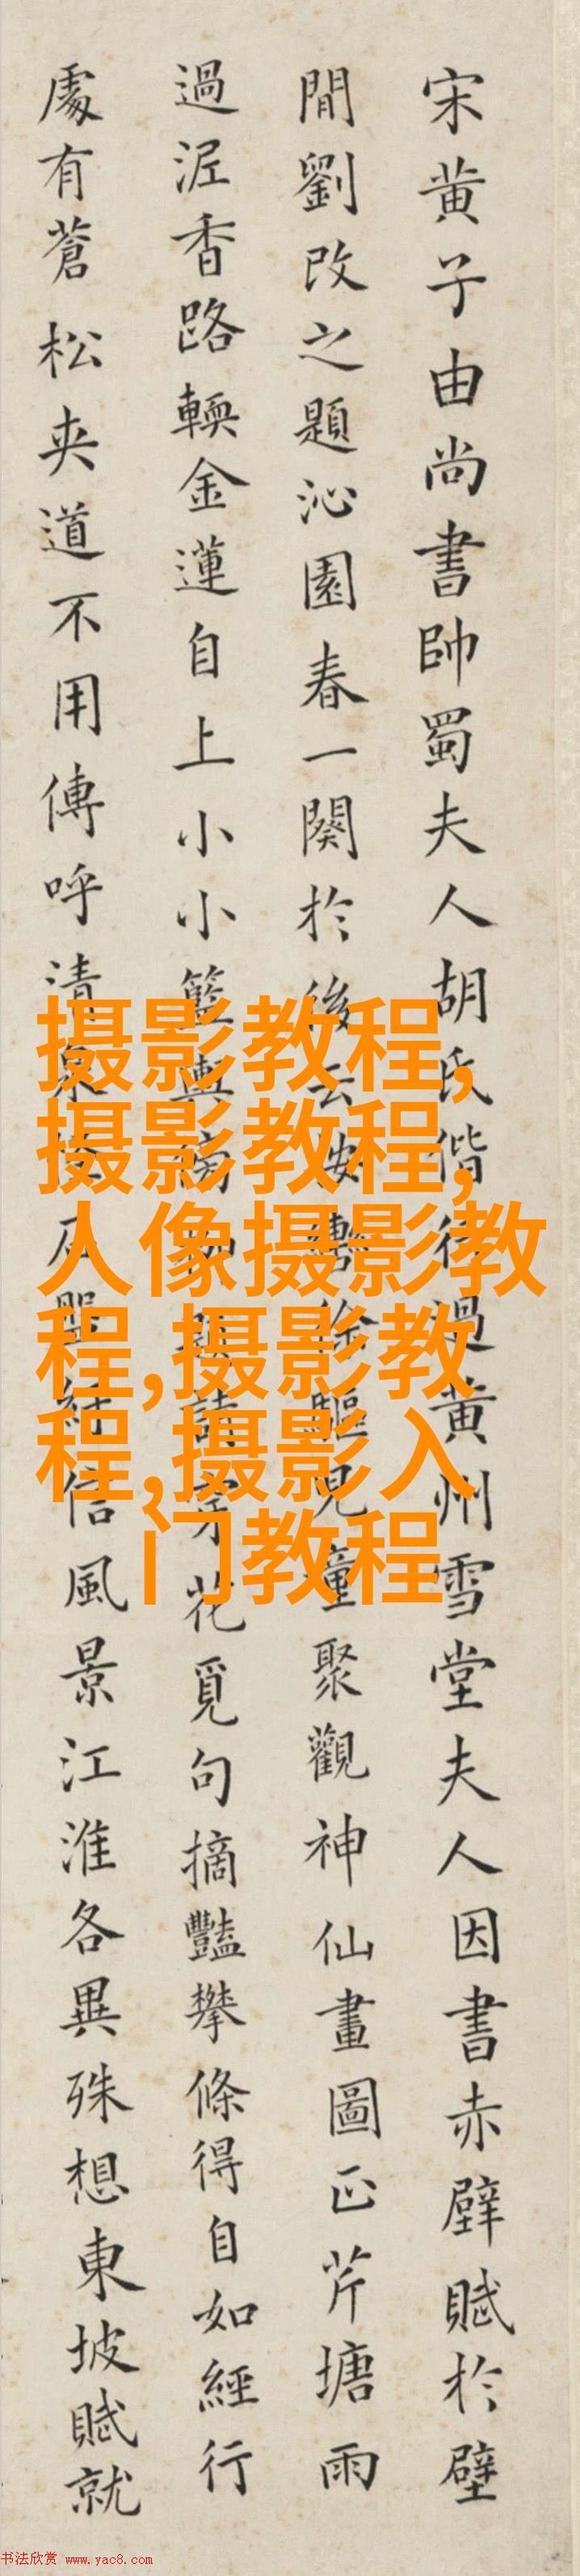 宋黄子由尚書帥蜀夫人胡氏偕過黄州雪堂夫人因書赤壁賦於壁
間劉改之題沁園春一闋於後云按轡徐驅兒童聚觀神仙畫圖正芹塘雨
過泥香路輭金蓮自上小小籃輿傍柳題詩穿花覓句摘豔攀條得自如經行
處有蒼松夾道不用傳呼清泉怪石盤紆信風景江淮各異殊想東坡賦就
摄影教程,
摄影教程,
人像摄影教
程,摄影教
程,摄影入
门教程
书法欣赏 www.yac8.com